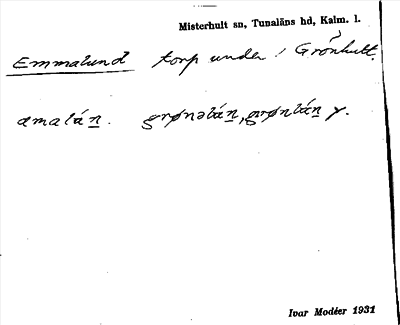 Misterhult sn, Tunaläns hd, Kalm. l.
Emmalund torp under ! Grönhult.
amalán. grønəlán, grønlán y.
Ivar Modéer 1931